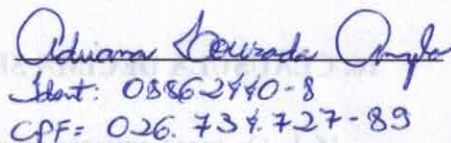 Adriana Lourada
Ident: 08862440-8
CPF= 026.734.727-89